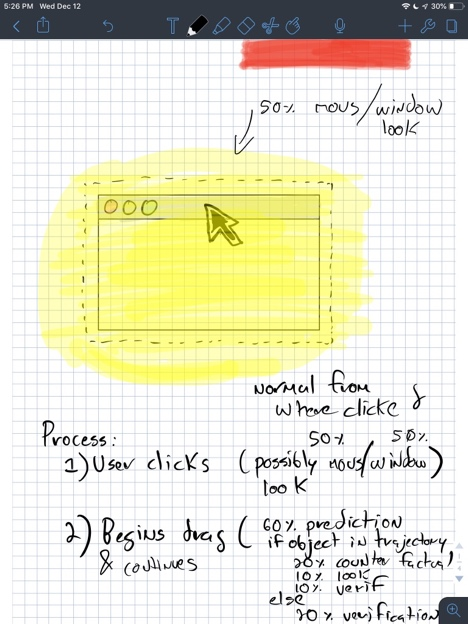 5:26 PM Wed Dec 12
30%
T
50% mous/window
look
Normal from
where clicke
Process:
50% 50%
1) User clicks (possibly mous/window)
look
2) Begins drag ( 60% prediction
& continues
if object in trajectory
20% counter factual
10% look
10% verif
else
20% verification